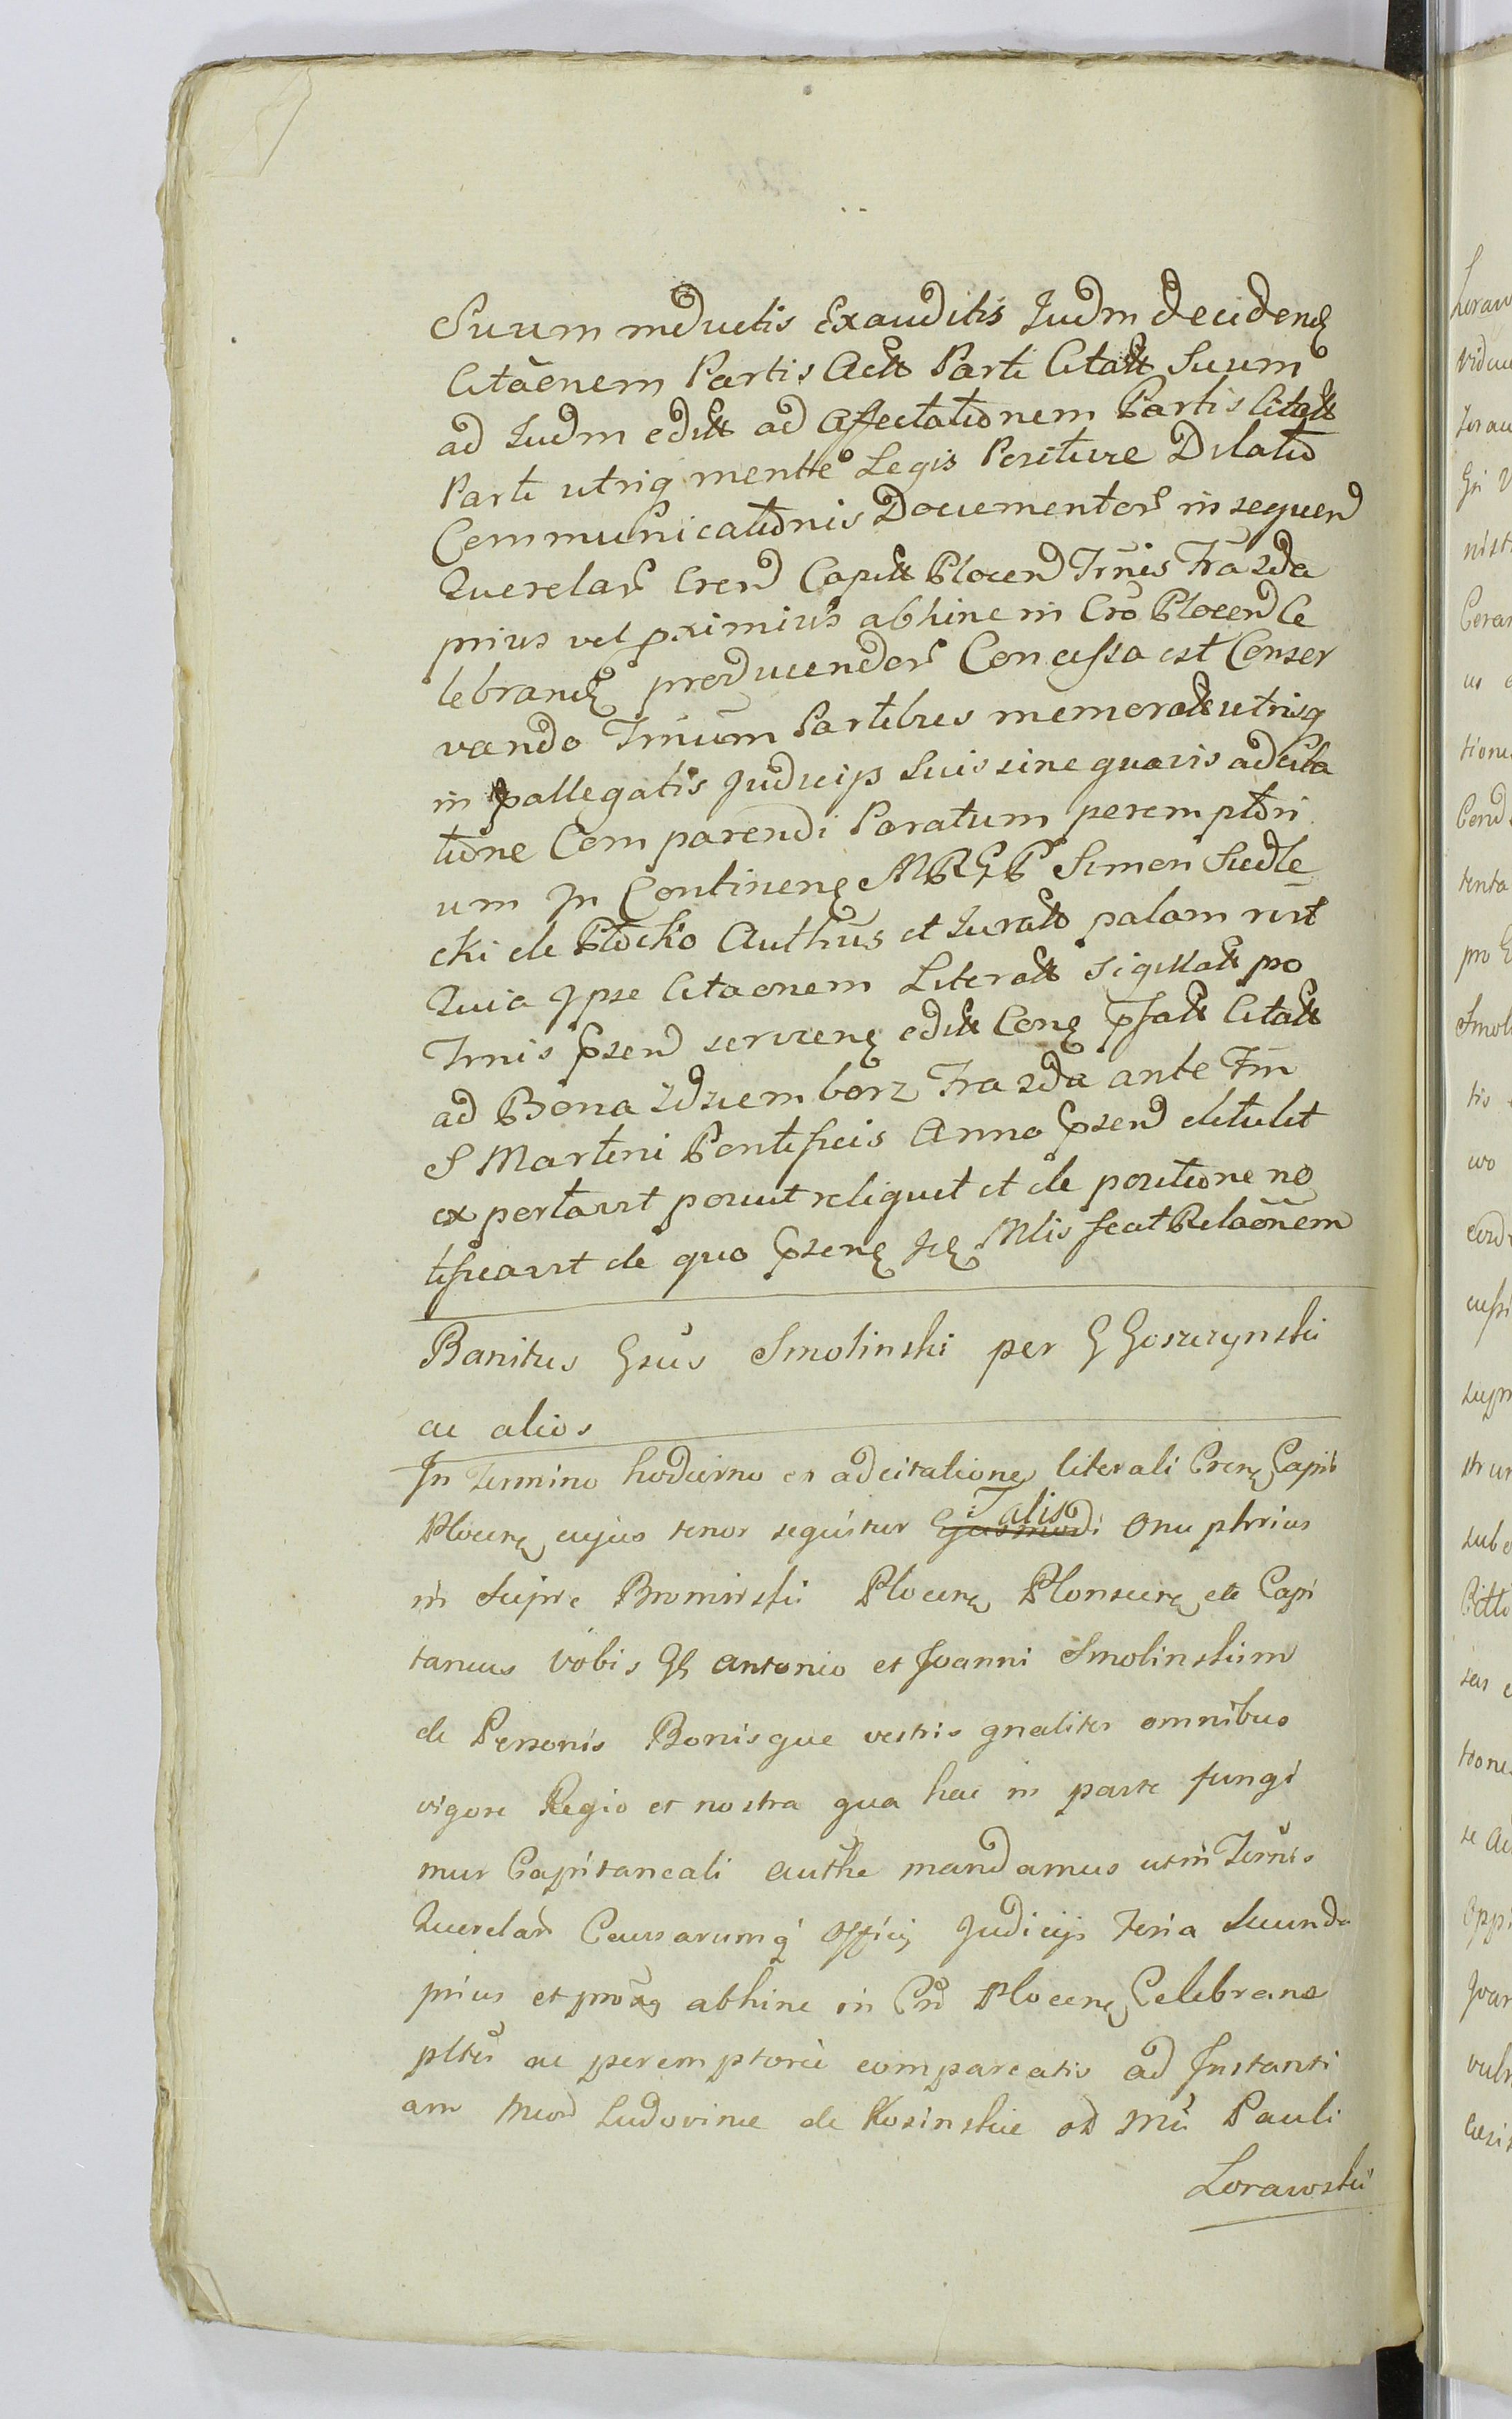 Suum inductis Exauditis Judm decidend
Citãonem Partis Actt Parti Citatt Suum
ad Judm editt ad affectationem Partis Citatt
Parti utriq mentte Legis Positivæ Dilatio
Communicationis Documentor in sequen
Querelar Cren Capitt Plocen Trnis Fra 2da
prius vel pximius abhinc in Cro Plocen Ce
lebrand producendor Concessa est Conser
vando Trnum Partibus memoratt utrisq
in pallegatis Judicijs Suis sine quavis adcita
tione Comparendi Paratum peremptori
um In Continen MRGP Simon Siedle
cki de Plocko Authus et Juratt palam rvit
Quia Ipse Citaonem Literatt Sigillatt pro
Trnis psen servien editt Con psatt Citatt
ad Bona Zdziemborz Fra 2da ante Fm
S Martini Pontificis Anno psen detulit
exportavit posuit reliquit et de positione no
tificavit de quo psen Mlis fecit Relaõnem
Banitus Gsus Smolinski per G Goszczynski
ac alios
In Termino hodierno ex adcitatione literali Cren Capit
Plocen cujus tenor sequitur Ejusmodi Talis Onuphrius
in Supre Bromirski Plocen Plonscen ete Capi
taneus Vobis GG Antonio et Joanni Smolinskim
de Personis Bonisque vestris gnaliter omnibus
vigore Regio et nostra qua hac in parte fungi
mur Capitaneali authte mandamus ut in Ternis
Querelar Causarumq Officij Judicijs Feria Secunda
prius et prox abhinc in Cro Plocen Celebran
pltr ac peremptorie compareatis ad Instanti
am Ludovinæ de Kosinskie Pauli
Lorawski